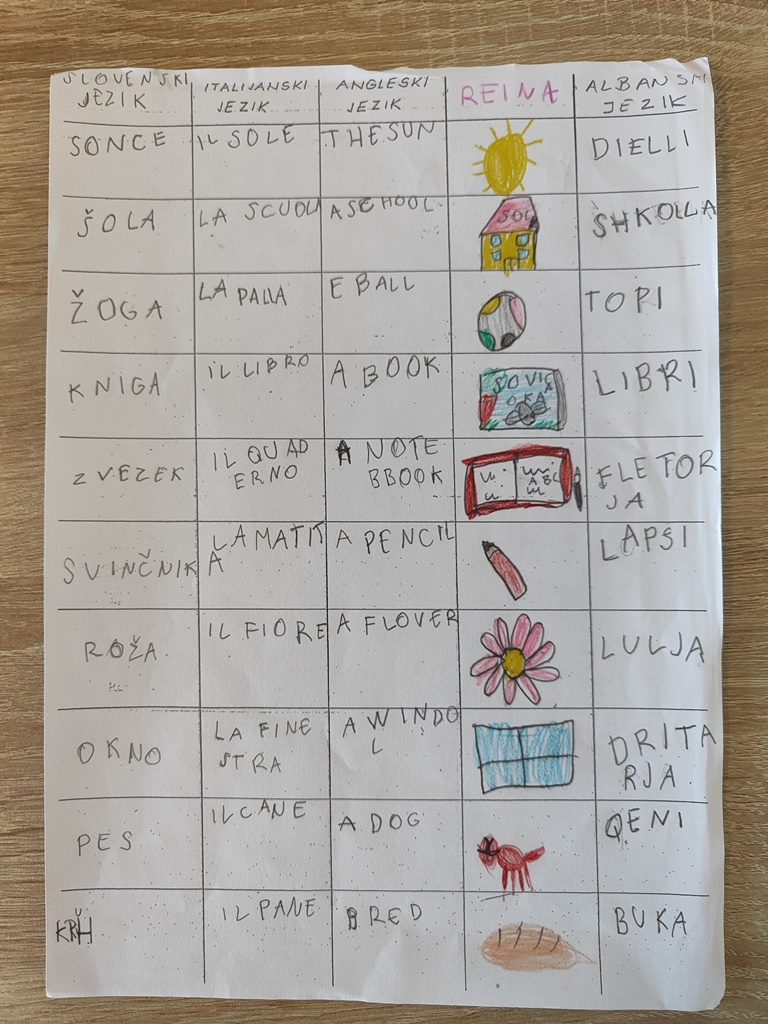 SLOVENSKI
JEZIK
ITALIJANSKI
JEZIK
ANGLESKI
JEZIK
REINA
ALBANSKI
JEZIK
SONCE
IL SOLE
THE SUN
DIELLI
ŠOLA
LA SCUOLA
A SCHOOL
ŠOL
SHKOLLA
ŽOGA
LA PALLA
E BALL
TOPI
KNIGA
IL LIBRO
A BOOK
SOVIC
OKA
LIBRI
ZVEZEK
IL QUAD
ERNO
A NOTE
BBOOK
ABC
FLETOR
JA
SVINČNIK
LA MATIT
A
A PENCIL
LAPSI
ROŽA
IL FIORE
A FLOVER
LULJA
OKNO
LA FINE
STRA
A WINDO
L
DRITA
RJA
PES
IL CANE
A DOG
QENI
KRŬH
IL PANE
BRED
BUKA